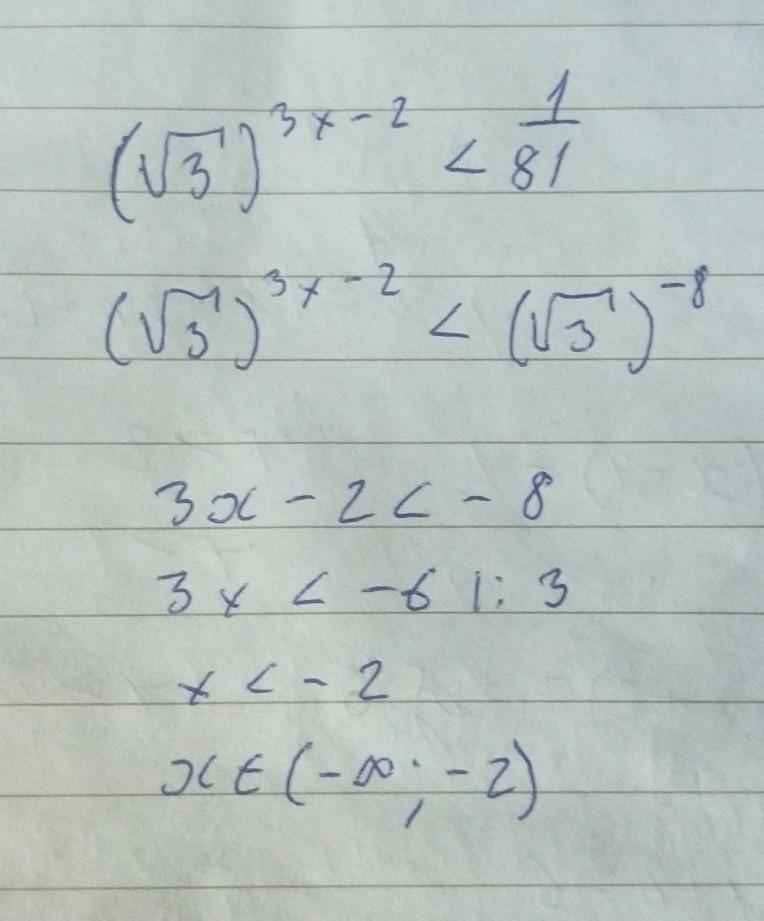 (√3)^{3x-2} < \frac{1}{81}
(√3)^{3x-2} < (√3)^{-8}
3x - 2 < - 8
3x < -6 |: 3
x < - 2
x ∈ (-∞; -2)